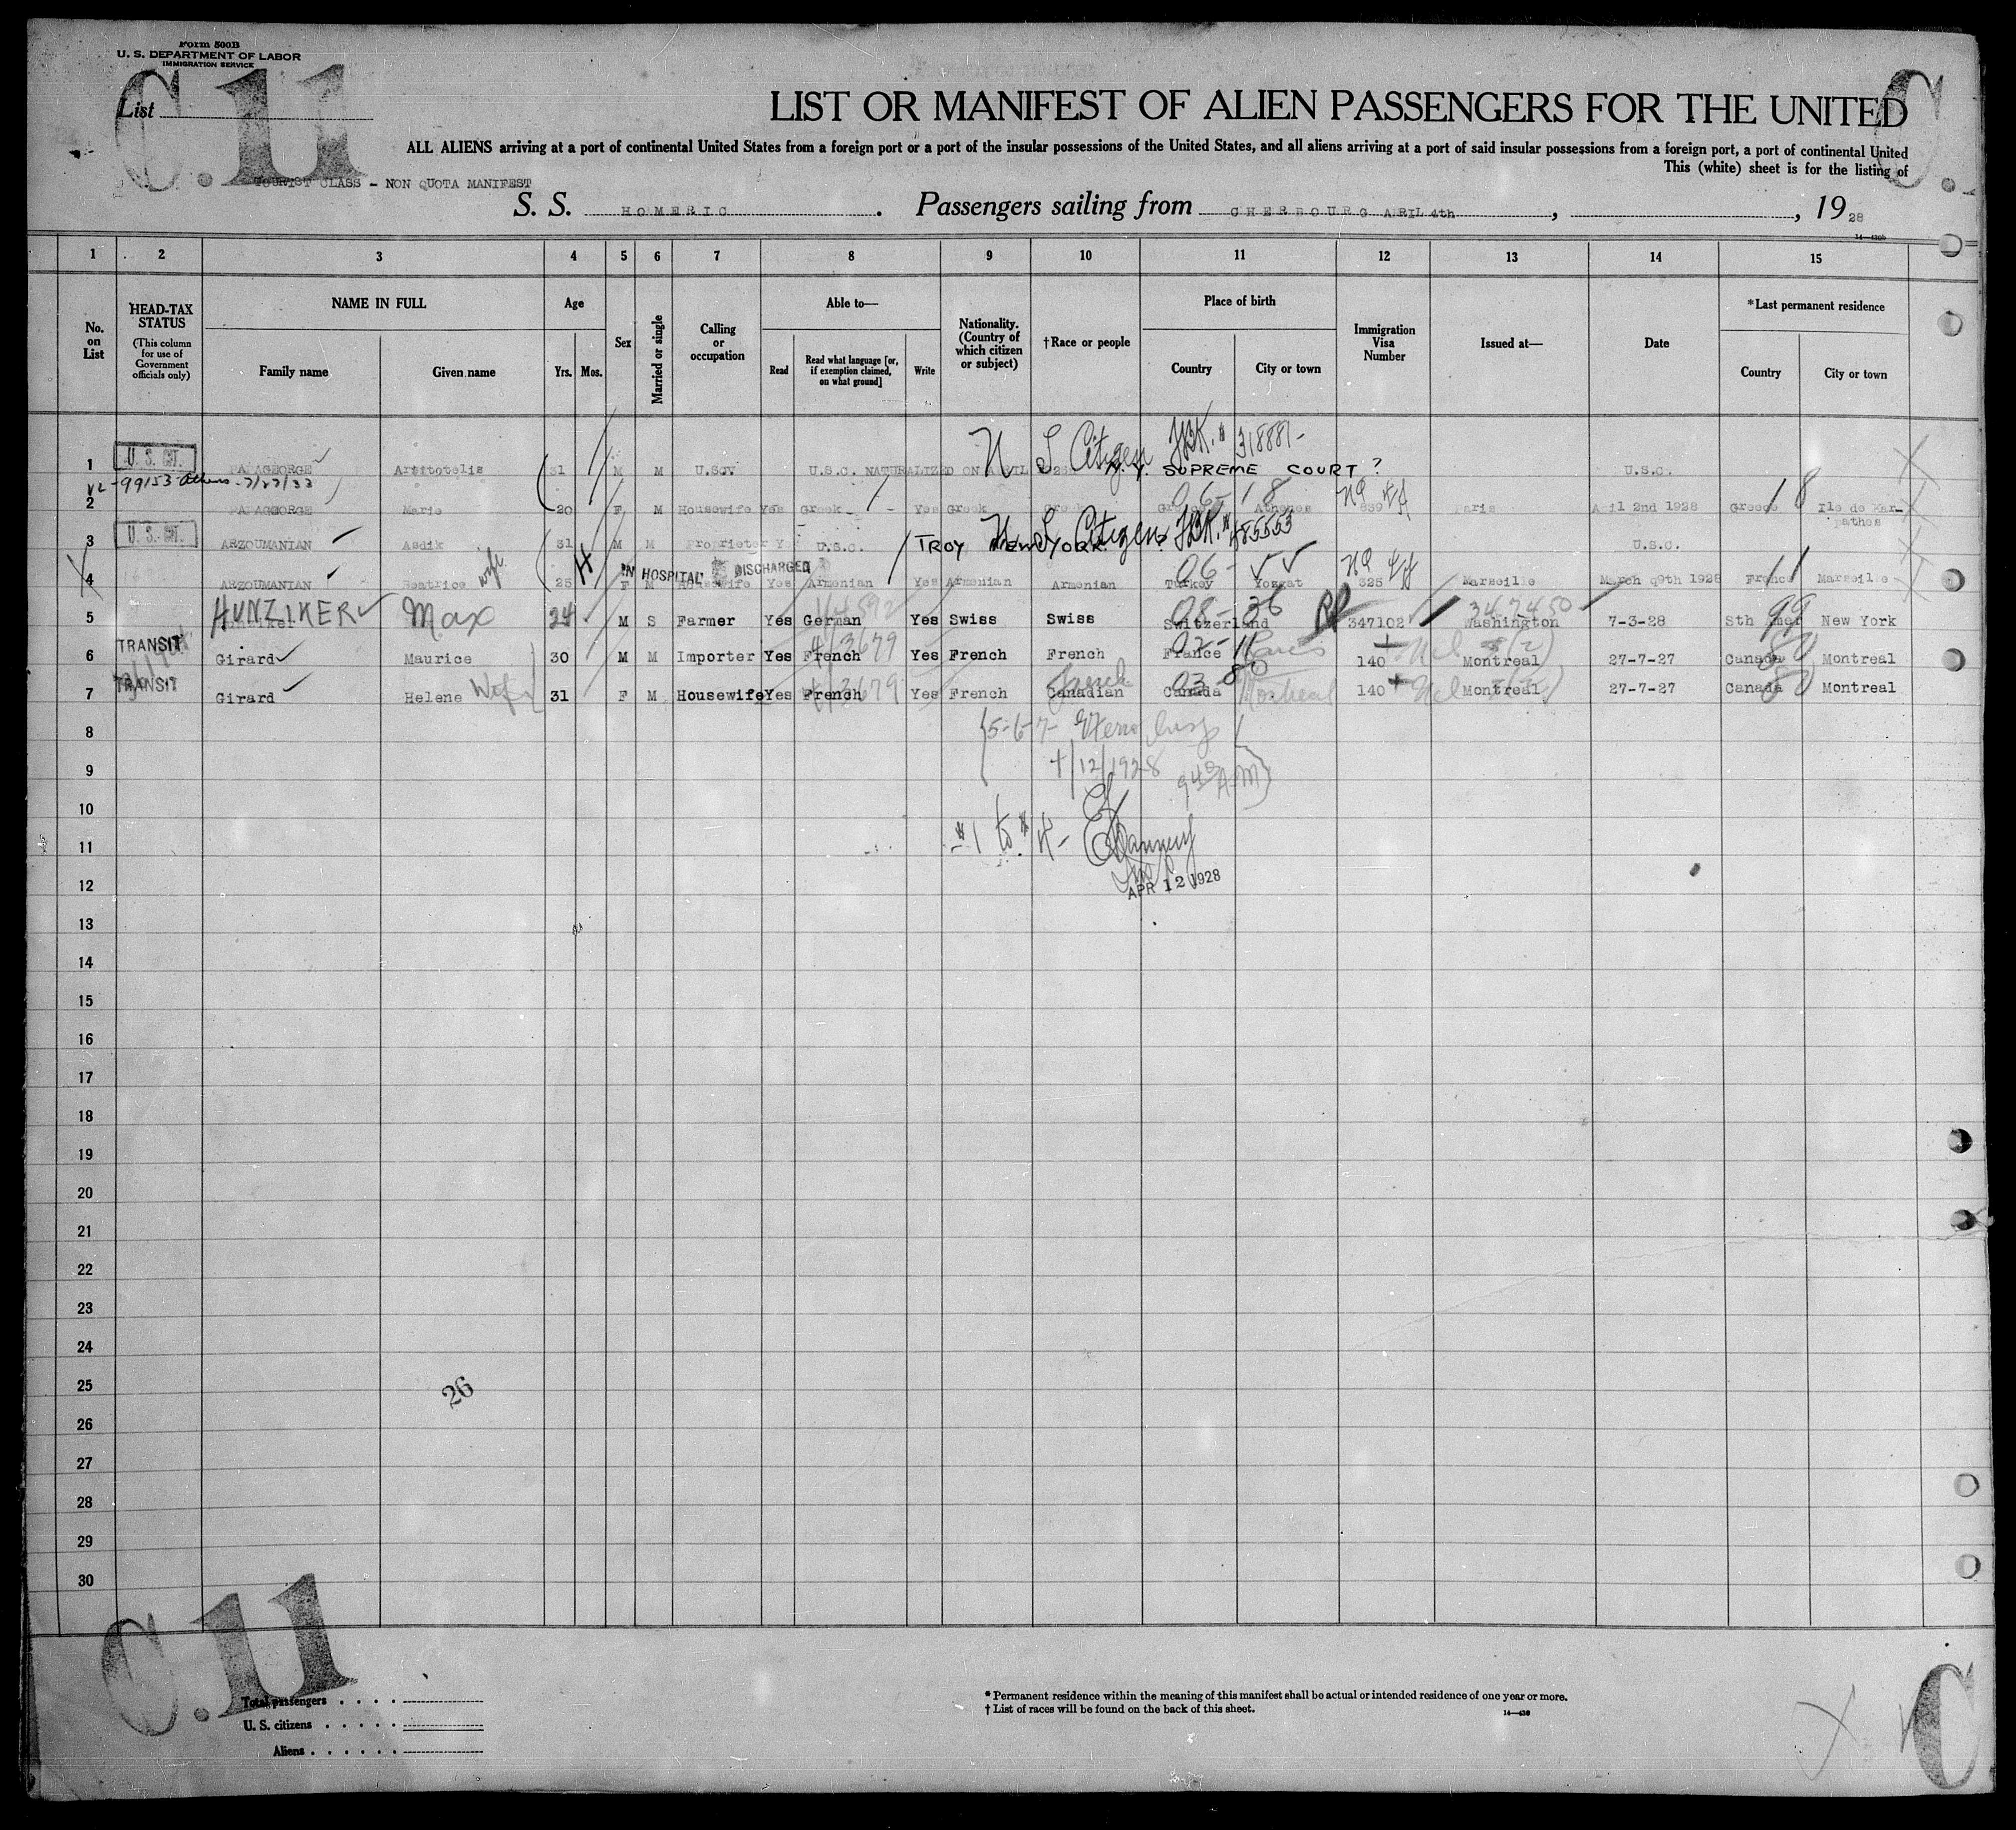 Form 500B
U. S. DEPARTMENT OF LABOR
IMMIGRATION SERVICE
C.U
C.
List
LIST OR MANIFEST OF ALIEN PASSENGERS FOR THE UNITED
ALL ALIENS arriving at a port of continental United States from a foreign port or a port of the insular possessions of the United States, and all aliens arriving at a port of said insular possessions from a foreign port, a port of continental United
This (white) sheet is for the listing of
TOURIST CLASS - NON QUOTA MANIFEST
S. S. HOMERIC. Passengers sailing from CHERBOURG APRIL 4th, , 1928
1 2 3 4 5 6 7 8 9 10 11 12 13 14 15
No. on List
HEAD-TAX STATUS
(This column for use of Government officials only)
NAME IN FULL
Family name Given name
Age
Yrs. Mos.
Sex
Married or single
Calling or occupation
Able to—
Read
Read what language [or, if exemption claimed, on what ground]
Write
Nationality. (Country of which citizen or subject)
†Race or people
Place of birth
Country City or town
Immigration Visa Number
Issued at—
Date
*Last permanent residence
Country City or town
U S Citizen 318881-
1 U. S. CIT. PAPAGEORGE Aristotelis 31 M M U.S.C. NATURALIZED ON N.Y. SUPREME COURT? U.S.C.
99153 Athens 7/27/33
06-18
2 PAPAGEORGE Marie 20 F M Housewife Yes Greek Yes Greek Greek Athenes 839 Paris April 2nd 1928 Greece 18 Ile de Karpathos
U S Citizen 485553
3 U. S. CIT. ARZOUMANIAN Asdik 31 M M Proprietor U.S.C. TROY NEW YORK. U.S.C.
IN HOSPITAL DISCHARGED
06-
4 ARZOUMANIAN Beatrice wife 25 F M Housewife Yes Armenian Yes Armenian Armenian Turkey Yozgat 325 Marseille March 1928 France 11 Marseille
5 HUNZIKER Max 24 M S Farmer Yes German Yes Swiss Swiss 08-36 Switzerland 347102 347450 Washington 7-3-28 Sth 99 New York
6 TRANSIT Girard Maurice 30 M M Importer Yes French 3679 Yes French French 02-11 France Paris 140 Montreal 27-7-27 Canada 80 Montreal
7 TRANSIT Girard Helene Wife 31 F M Housewife Yes French 3679 Yes French French Canadian 03-80 Canada Montreal 140 Montreal 27-7-27 Canada 80 Montreal
8 5-6-7-
9 4/12/1928 9 40 AM
10
11 #1 to #4-
12 APR 12 1928
13
14
15
16
17
18
19
20
21
22
23
24
25 26
26
27
28
29
30
C.U
Total passengers
U. S. citizens
Aliens
*Permanent residence within the meaning of this manifest shall be actual or intended residence of one year or more.
†List of races will be found on the back of this sheet.
14—430
C